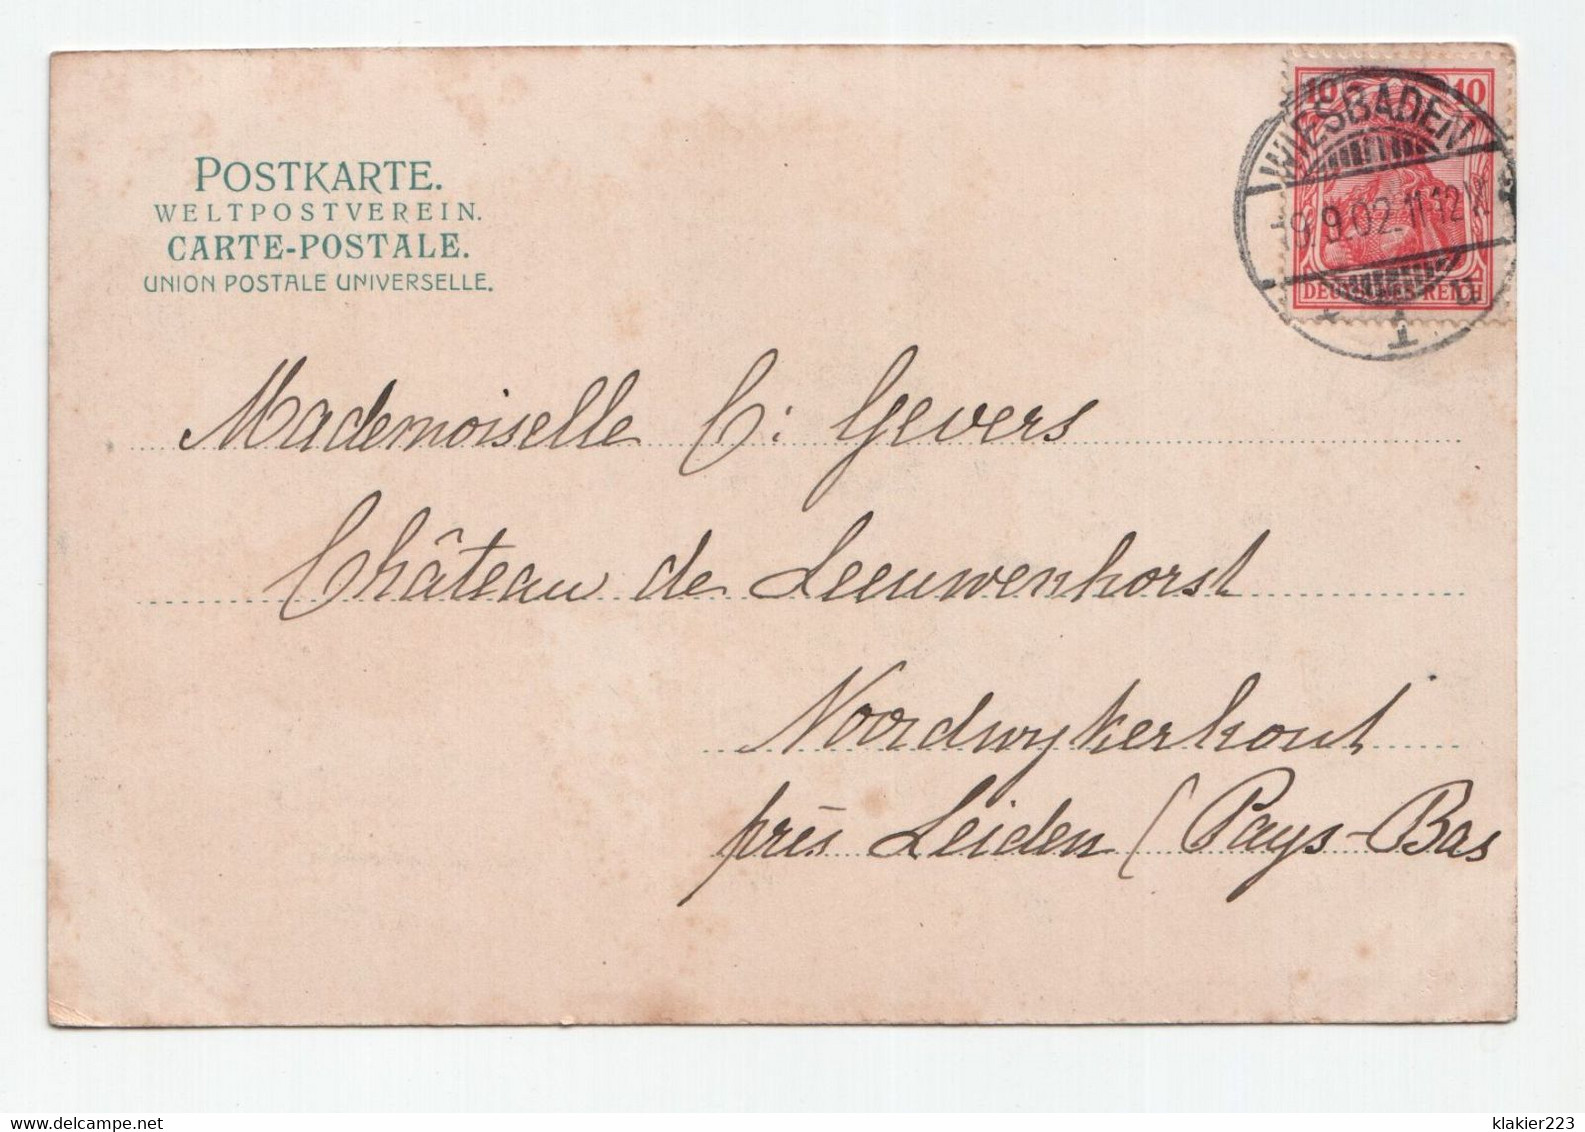 POSTKARTE.
WELTPOSTVEREIN.
CARTE-POSTALE.
UNION POSTALE UNIVERSELLE.
10 10
DEUTSCHES REICH
WIESBADEN
9.9.02.11-12V.
* 1 u
Mademoiselle C: Gevers
Château de Leeuwenhorst
Noordwykerhout
près Leiden (Pays-Bas
http://www.delcampe.net
klakier223